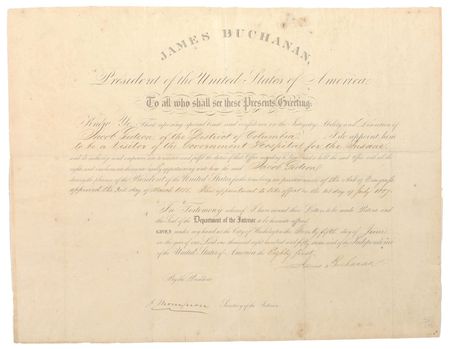 JAMES BUCHANAN,
President of the United States of America
To all who shall see these Presents, Greeting:
Know Ye, That reposing special trust and confidence in the Integrity, Ability and Discretion of
Jacob Gideon, of the District of Columbia, I do appoint him
to be a Visitor of the Government Hospital for the Insane
and do authorize and empower him to execute and fulfil the duties of that Office according to law, and to hold the said Office with all the
rights and emoluments thereunto legally appertaining unto him the said Jacob Gideon
during the pleasure of the President of the United States for the time being
approved the 3rd day of March 1855. This appointment to take effect on the 1st day of July 1857.
In Testimony whereof, I have caused these Letters to be made Patent and
the Seal of the Department of the Interior to be hereunto affixed
GIVEN under my hand at the City of Washington the day of June
in the year of our Lord one thousand eight hundred and fifty seven and of the Independence
of the United States of America the Eighty first.
James Buchanan
By the President
J. Thompson Secretary of the Interior